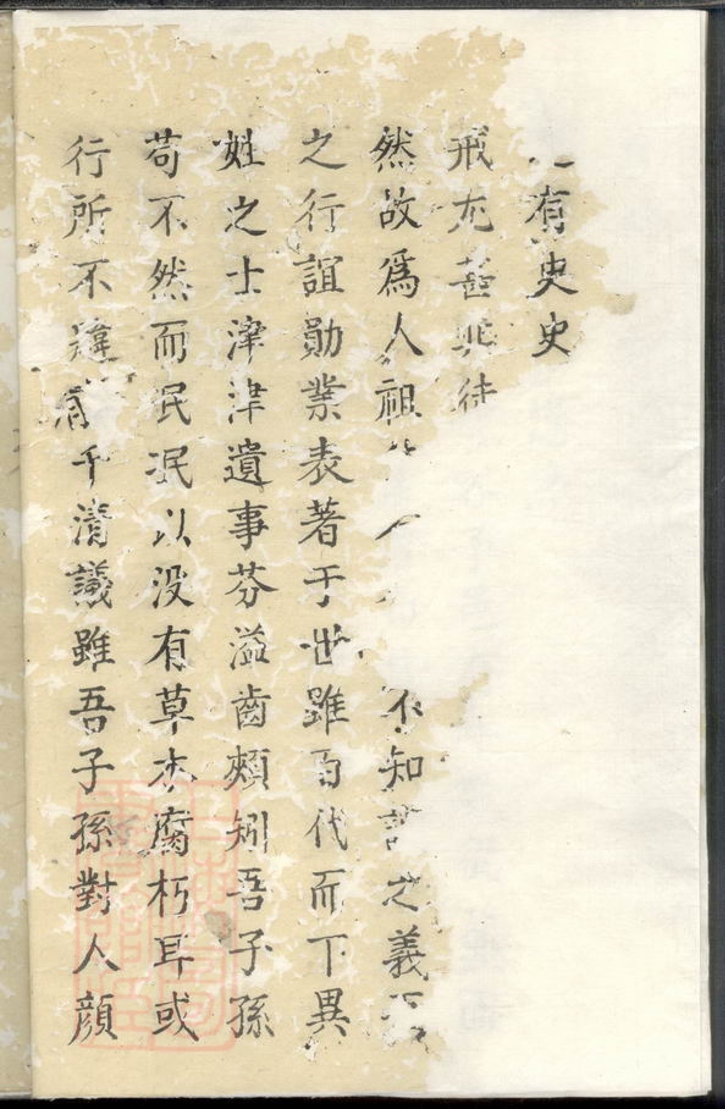 有史史
戒尤善 徒
然故為人祖 不知 之義
之行誼勛業表著于世雖百代而下異
姓之士津津遺事芬溢齒頰矧吾子孫
苟不然而民泯以没有草木腐朽耳或
行所不違有干清議雖吾子孫對人顏